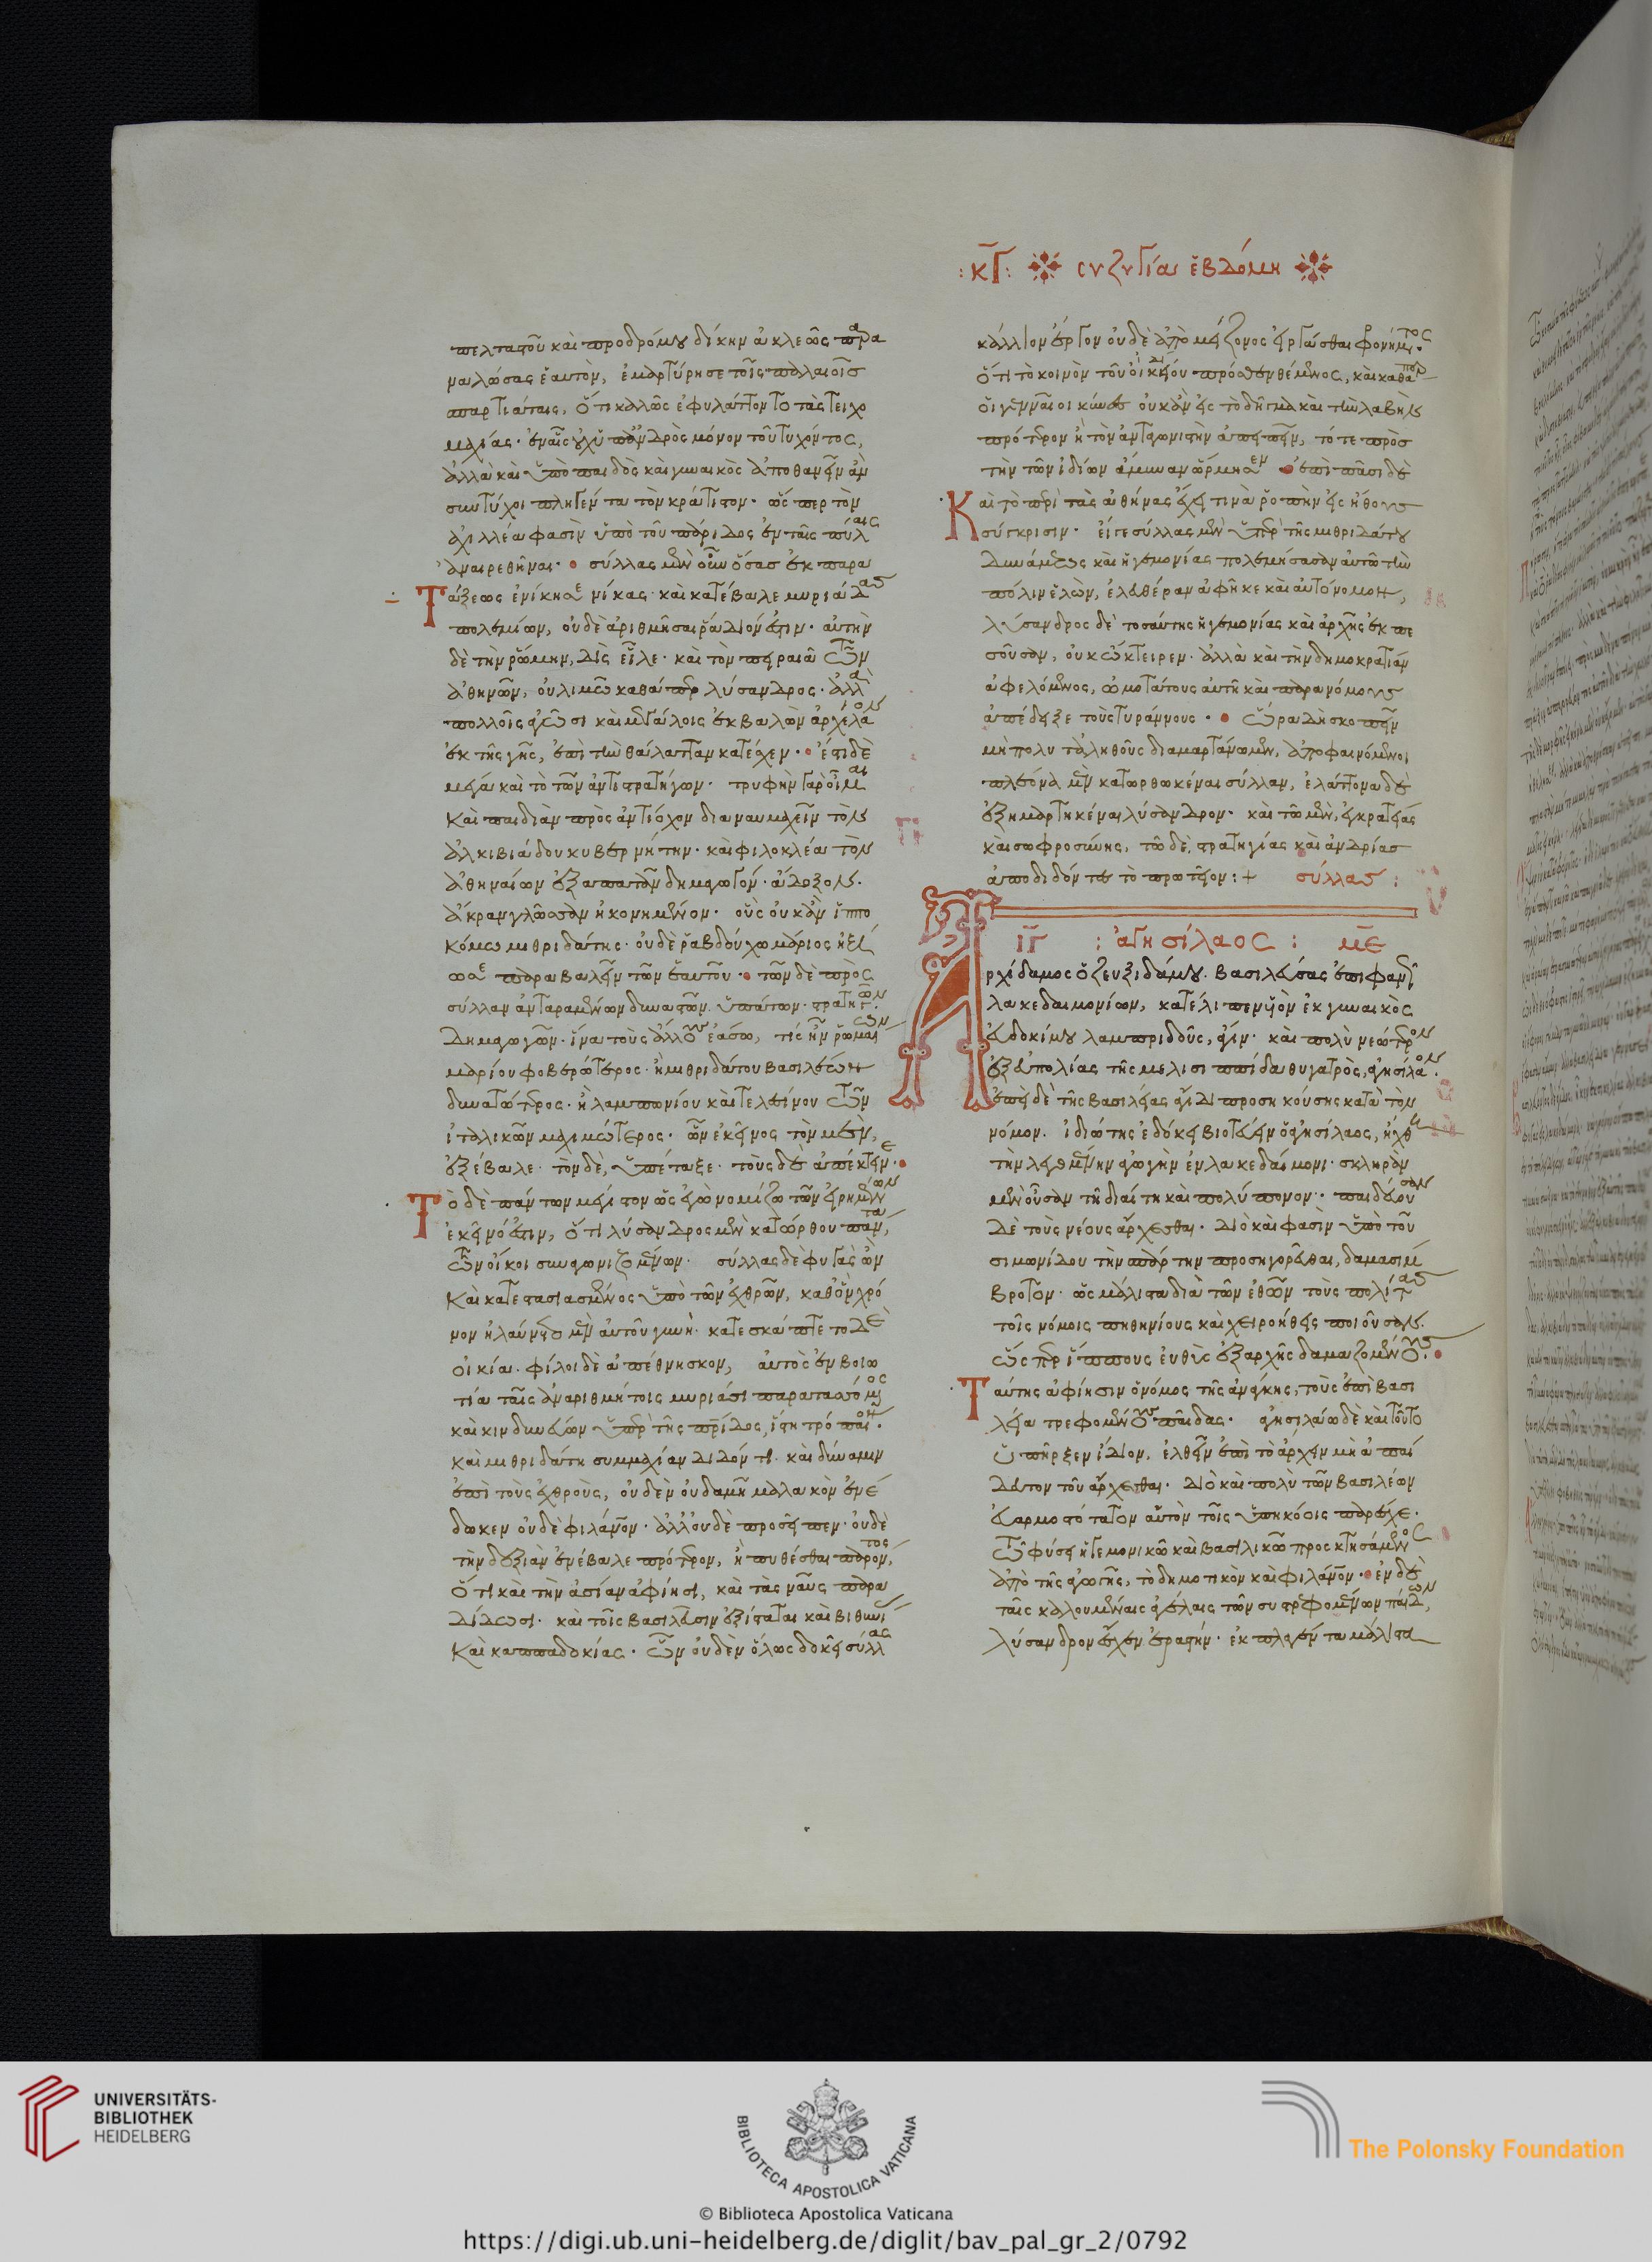 :κγ: συζυγία ἑβδόμη
πελταστοῦ καὶ προδρόμου δίκην ἀκλεῶς παρα
ναλώσας ἑαυτὸν, ἐμαρτύρησε τοῖς παλαιοῖς
σπαρτιάταις, ὅτι καλῶς ἐφυλάττοντο τὰς τειχο
μαχίας· ἐν αἷς οὐχ ὑπ' ἀνδρὸς μόνον τοῦ τυχόντος,
ἀλλὰ καὶ ὑπὸ παιδὸς καὶ γυναικὸς ἀποθανεῖν ἂν
συντύχοι πληγέντα τὸν κράτιστον· ὥσπερ τὸν
ἀχιλλέα φασὶν ὑπὸ τοῦ πάριδος ἐν ταῖς πύλαις
ἀναιρεθῆναι· σύλλας μὲν οὖν ὅσας ἐκ παρα
τάξεως ἐνίκησε νίκας καὶ κατέβαλε μυριάδας
πολεμίων, οὐδὲ ἀριθμῆσαι ῥάδιόν ἐστιν· αὐτὴν
δὲ τὴν ῥώμην, δὶς εἷλε· καὶ τὸν πειραιᾶ τῶν
ἀθηνῶν, οὐ λιμῶ καθάπερ λύσανδρος· ἀλλὰ
πολλοῖς ἀγῶσι καὶ μεγάλοις ἐκβαλὼν ἀρχέλαον
ἐκ τῆς γῆς, ἐπὶ τὴν θάλατταν κατέσχεν· ἔστι δὲ
μέγα καὶ τὸ τῶν ἀντιστρατήγων· τρυφὴν γὰρ οἶμαι
καὶ παιδιὰν πρὸς ἀντίοχον διαναυμαχεῖν τὸν
ἀλκιβιάδου κυβερνήτην· καὶ φιλοκλέα τὸν
ἀθηναίων ἐξαπατᾶν δημαγωγόν· ἄδοξον·
ἄκραν γλῶσσαν ἠκονημένον· οὓς οὐκ ἂν ἱππο
κόμω μιθριδάτης· οὐδὲ ῥαβδούχω μάριος ἠξί
ωσε παραβαλεῖν τῶν ἑαυτοῦ· τῶν δὲ πρὸς
σύλλαν ἀνταραμένων δυναστῶν ὑπάτων· στρατηγῶν·
δημαγωγῶν· ἵνα τοὺς ἄλλους ἐάσω, τίς ἦν ῥωμαίων
μαρίου φοβερώτερος· ἢ μιθριδάτου βασιλέων
δυνατώτερος· ἢ λαμπωνίου καὶ τελεσίνου τῶν
ἰταλικῶν μαχιμώτερος· ὧν ἐκεῖνος τὸν μὲν,
ἐξέβαλε· τὸν δὲ, ὑπέταξε· τοὺς δὲ ἀπέκτεινε·
Τὸ δὲ πάντων μέγιστον ὡς ἐγὼ νομίζω τῶν εἰρημένων
ἐκεῖνό ἐστιν, ὅτι λύσανδρος μὲν κατώρθου πάντα,
τῶν οἴκοι συναγωνιζομένων· σύλλας δὲ φυγὰς ὢν
καὶ κατεστασιασμένος ὑπὸ τῶν ἐχθρῶν, καθ' ὃν χρό
νον ἠλαύνετο μὲν αὐτοῦ γυνὴ· κατεσκάπτετο δὲ
οἰκία· φίλοι δὲ ἀπέθνησκον, αὐτὸς ἐν βοιω
τία ταῖς ἀναριθμήτοις μυριάσι παραταττόμενος
καὶ κινδυνεύων ὑπὲρ τῆς πατρίδος, ἵστη τρόπαιον·
καὶ μιθριδάτη συμμαχίαν διδόντι καὶ δύναμιν
ἐπὶ τοὺς ἐχθροὺς, οὐδὲν οὐδαμῆ μαλακὸν ἐνέ
δωκεν οὐδὲ φιλάνθρωπον· ἀλλ' οὐδὲ προσεῖπεν· οὐδὲ
τὴν δεξιὰν ἐνέβαλε πρότερον, ἢ πυθέσθαι παρόντος,
ὅτι καὶ τὴν ἀσίαν ἀφίησι, καὶ τὰς ναῦς παρα
δίδωσι· καὶ τοῖς βασιλεῦσιν ἐξίσταται καὶ βιθυνί
καὶ καππαδοκίας· ὧν οὐδὲν ὅλως δοκεῖ σύλλας
κάλλιον ἔργον οὐδὲ ἀπὸ μείζονος εἰργάσθαι φρονήματος·
ὅτι τὸ κοινὸν τοῦ οἰκείου πρόσθεν θέμενος, καὶ καθάπερ
οἱ γενναῖοι κύνες οὐκ ἀνεὶς τὸ δῆγμα καὶ τὴν λαβὴν
πρότερον ἢ τὸν ἀνταγωνιστὴν ἀπειπεῖν, τότε πρὸς
τὴν τῶν ἰδίων ἄμυναν ὥρμησεν· ἐπὶ πᾶσι δὲ
Καὶ τὸ περὶ τὰς ἀθήνας ἔχει τινὰ ῥοπὴν εἰς ἤθους
σύγκρισιν· εἴγε σύλλας μὲν ὑπὲρ τῆς μιθριδάτου
δυνάμεως καὶ ἡγεμονίας πολεμήσασαν αὐτῶ τὴν
πόλιν ἑλὼν, ἐλευθέραν ἀφῆκε καὶ αὐτόνομον,
λύσανδρος δὲ τοσαύτης ἡγεμονίας καὶ ἀρχῆς ἐκπε
σοῦσαν, οὐκ ὤκτειρεν· ἀλλὰ καὶ τὴν δημοκρατίαν
ἀφελόμενος, ὠμοτάτους αὐτῆ καὶ παρανόμους
ἀπέδειξε τοὺς τυράννους· ὥρα δὴ σκοπεῖν
μὴ πολὺ τἀληθοῦς διαμαρτάνωμεν, ἀποφαινόμενοι
πλείονα μὲν κατωρθωκέναι σύλλαν, ἐλάττονα δὲ
ἐξημαρτηκέναι λύσανδρον· καὶ τῶ μὲν, ἐγκρατείας
καὶ σωφροσύνης, τῶ δὲ, στρατηγίας καὶ ἀνδρίας
ἀποδιδόντες τὸ πρωτεῖον:+ σύλλας:
ιγ :ἀγησίλαος: με
Ἀρχίδαμος ὁ ζευξιδάμου· βασιλεύσας ἐπιφανῶς
λακεδαιμονίων, κατέλιπεν υἱὸν ἐκ γυναικὸς
εὐδοκίμου λαμπριδοῦς, ἆγιν· καὶ πολὺ νεώτερον
ἐξ εὐπολίας τῆς μελισιππίδα θυγατρὸς, ἀγησίλαον·
ἐπεὶ δὲ τῆς βασιλείας ἄγιδι προσηκούσης κατὰ τὸν
νόμον· ἰδιώτης ἐδόκει βιοτεύειν ὁ ἀγησίλαος, ἤχθη
τὴν λεγομένην ἀγωγὴν ἐν λακεδαίμονι· σκληρὰν
μὲν οὖσαν τῆ διαίτη καὶ πολύπονον· παιδεύουσαν
δὲ τοὺς νέους ἄρχεσθαι· διὸ καὶ φασὶν ὑπὸ τοῦ
σιμωνίδου τὴν σπάρτην προσηγορεῦσθαι, δαμασίμ
βροτον· ὡς μάλιστα διὰ τῶν ἐθῶν τοὺς πολίτας
τοῖς νόμοις πειθηνίους καὶ χειροήθεις ποιοῦσαν·
ὥσπερ ἵππους εὐθὺς ἐξ ἀρχῆς δαμαζομένους·
Ταύτης ἀφίησιν ὁ νόμος τῆς ἀνάγκης, τοὺς ἐπὶ βασι
λεία τρεφομένους παῖδας· ἀγησιλάω δὲ καὶ τοῦτο
ὑπῆρξεν ἴδιον, ἐλθεῖν ἐπὶ τὸ ἄρχειν μὴ ἀπαί
δευτον τοῦ ἄρχεσθαι· διὸ καὶ πολὺ τῶν βασιλέων
εὐαρμοστότατον αὐτὸν τοῖς ὑπηκόοις παρέσχε·
τῶ φύσει ἡγεμονικῶ καὶ βασιλικῶ προσκτησάμενος
ἀπὸ τῆς ἀγωγῆς, τὸ δημοτικὸν καὶ φιλάνθρωπον· ἐν δὲ
ταῖς καλουμέναις ἀγέλαις τῶν συντρεφομένων παίδων,
λύσανδρον ἔσχεν ἐραστήν· ἐκπλαγέντα μάλιστα
UNIVERSITÄTS-
BIBLIOTHEK
HEIDELBERG
BIBLIOTECA APOSTOLICA VATICANA
The Polonsky Foundation
© Biblioteca Apostolica Vaticana
https://digi.ub.uni-heidelberg.de/diglit/bav_pal_gr_2/0792